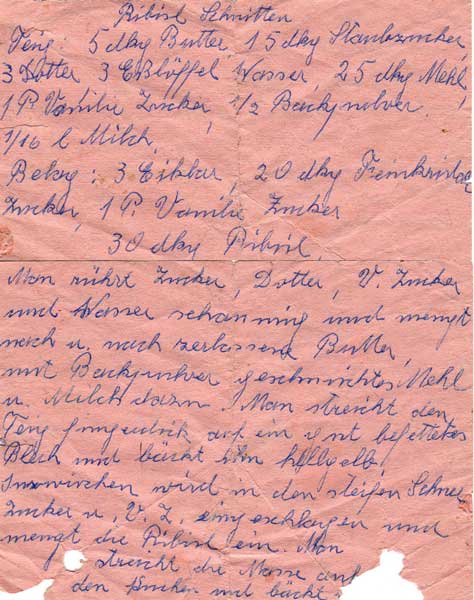 Ribisl Schnitten
Teig: 5 dkg Butter, 15 dkg Staubzucker
3 Dotter 3 Eßlöffel Wasser, 25 dkg Mehl,
1 P. Vanilie Zucker, 1/2 Backpulver,
1/16 l Milch,
Belag: 3 Eiklar, 20 dkg Feinkristal
Zucker, 1 P. Vanilie Zucker
30 dkg Ribisl,
Man rührt Zucker, Dotter, V. Zucker
und Wasser schaumig und mengt
nach u. nach zerlassene Butter,
mit Backpulver gemischtes Mehl
u. Milch dazu. Man streicht den
Teig fingerdick auf ein gut befettetes
Blech und bäckt ihn hellgelb,
Inzwischen wird in den steifen Schnee
Zucker u. V. Z. eingeschlagen und
mengt die Ribisl ein. Man
streicht die Masse auf
den Kuchen und bäckt